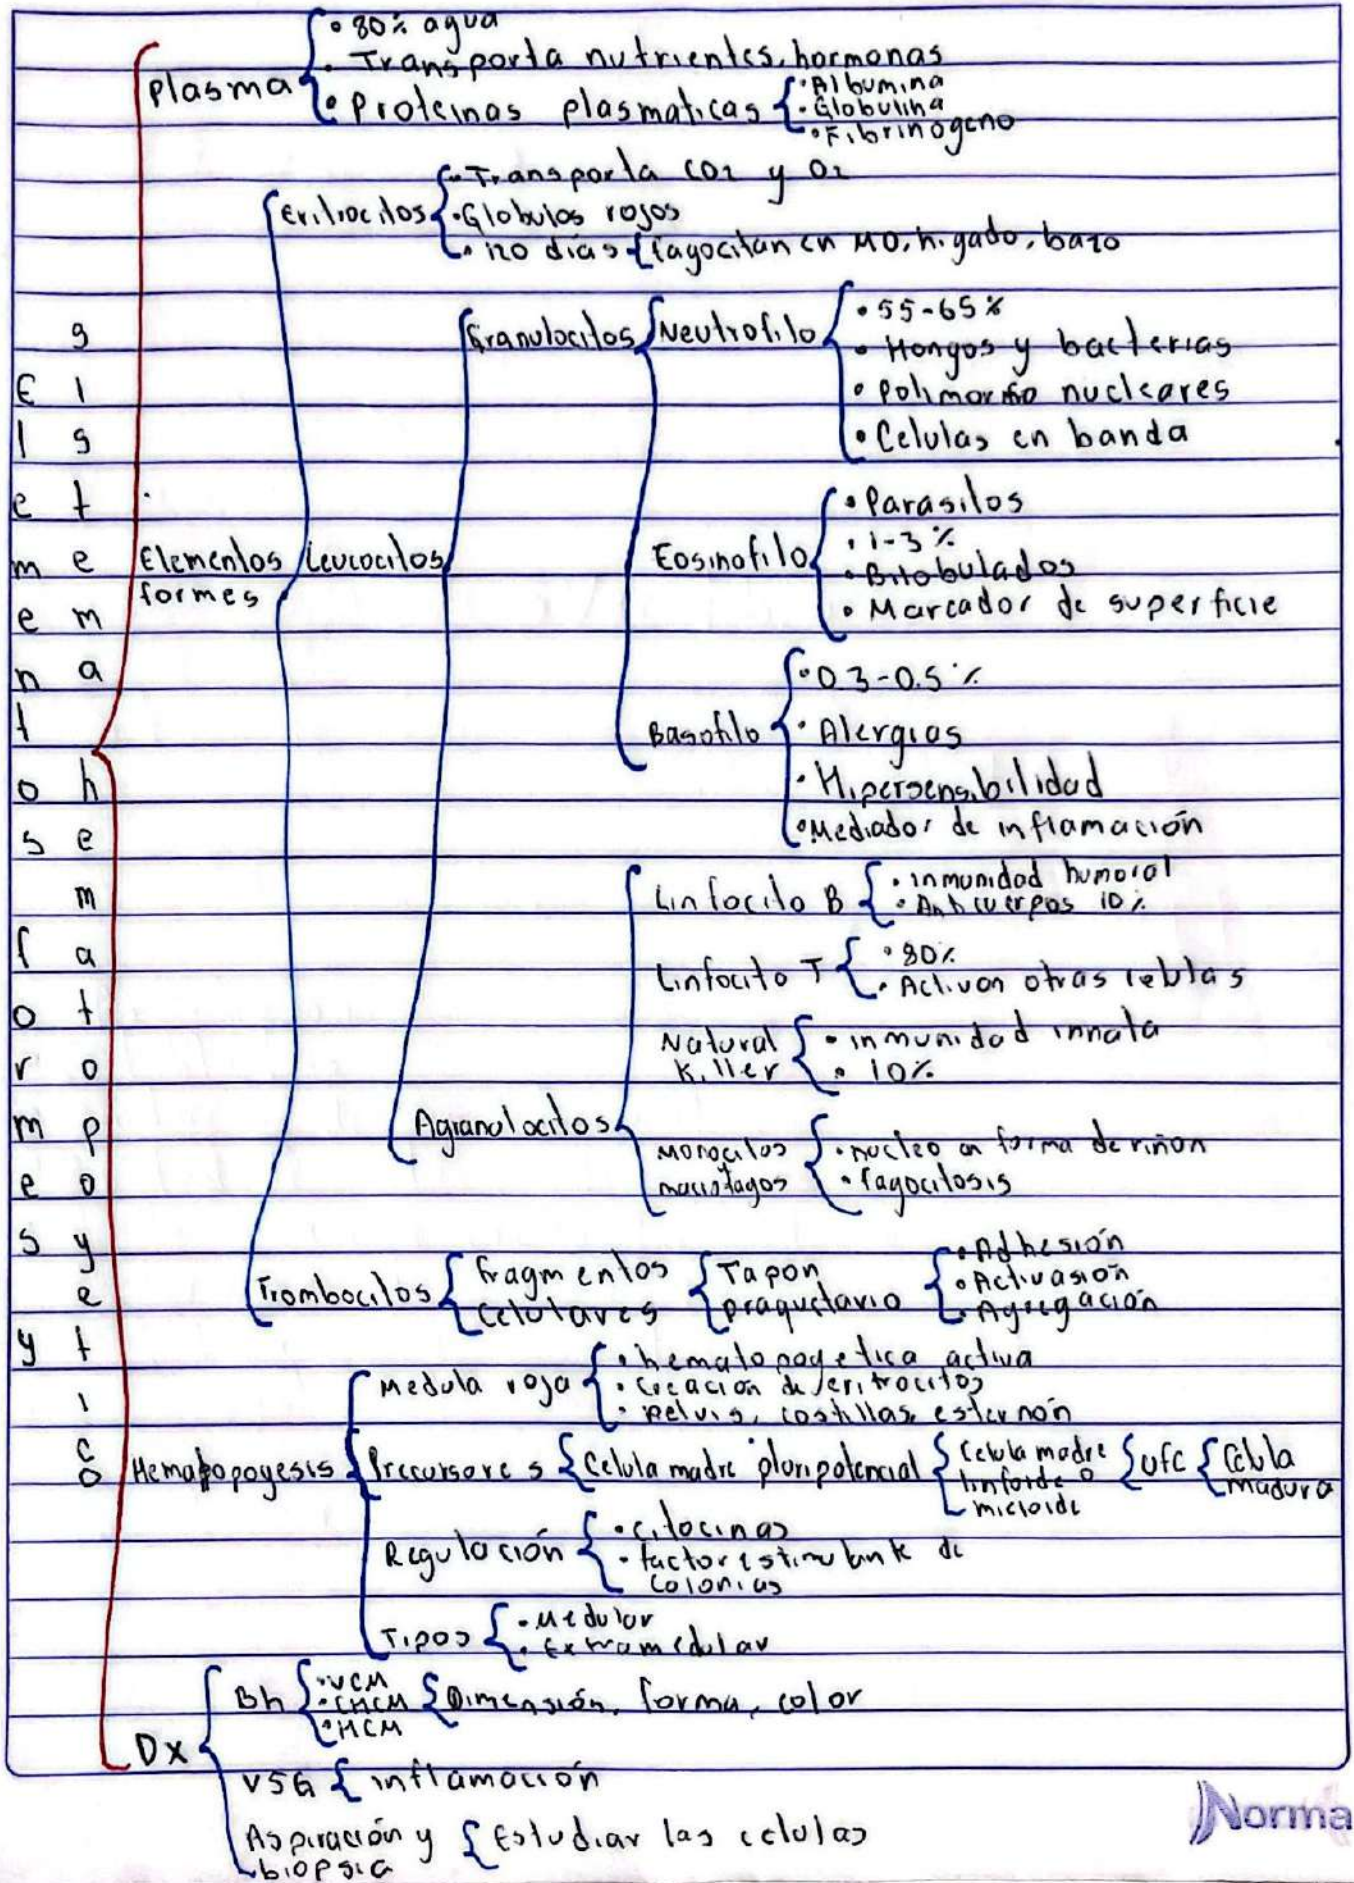 Elementos formes y
sistema hematopoyetico
Plasma
• 80% agua
• Transporta nutrientes, hormonas
• Proteinas plasmaticas
• Albumina
• Globulina
• Fibrinógeno
Elementos
formes
Eritrocitos
• Transporta CO2 y O2
• Globulos rojos
• 120 días
fagocitan en MO, higado, bazo
Leucocitos
Granulocitos
Neutrofilo
• 55-65%
• Hongos y bacterias
• Polimorfo nucleares
• Celulas en banda
Eosinofilo
• Parasitos
• 1-3%
• Bilobulados
• Marcador de superficie
Basofilo
• 0.3-0.5%
• Alergias
• Hipersensibilidad
• Mediador de inflamación
Agranulocitos
Linfocito B
• inmunidad humoral
• Anticuerpos 10%
Linfocito T
• 80%
• Activan otras celulas
Natural
Killer
• inmunidad innata
• 10%
Monocitos
macrofagos
• nucleo en forma de riñon
• fagocitosis
Trombocitos
fragmentos
celulares
Tapon
• Adhesión
• Activasión
• Agregación
Hematopoyesis
Medula roja
• hematopoyetica activa
• Creación de eritrocitos
• pelvis, costillas, esternón
Precursores
Celula madre pluripotencial
Celula madre
linfoide o
mieloide
UFC
Célula
madura
Regulación
• citocinas
• factor estimulante de
colonias
Tipos
• Medular
• Extramedular
Dx
Bh
• VCM
• CHCM
• HCM
Dimensión, forma, color
VSG
inflamación
Aspiración y
biopsia
Estudiar las celulas
Norma